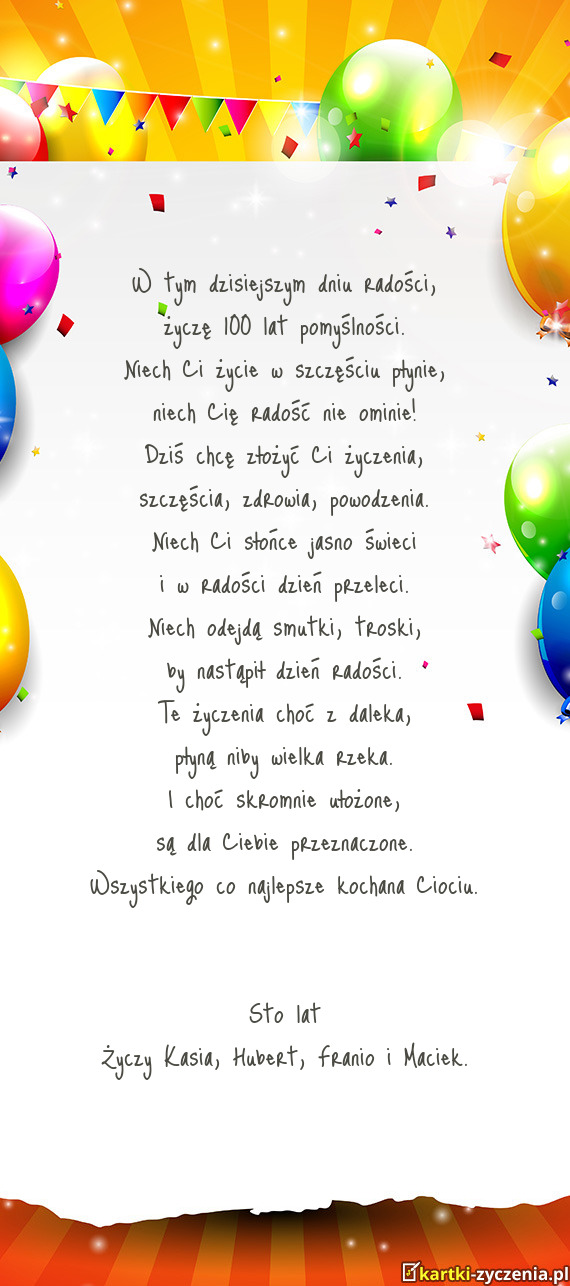 W tym dzisiejszym dniu radości,
życzę 100 lat pomyślności.
Niech Ci życie w szczęściu płynie,
niech Cię radość nie ominie!
Dziś chcę złożyć Ci życzenia,
szczęścia, zdrowia, powodzenia.
Niech Ci słońce jasno świeci
i w radości dzień przeleci.
Niech odejdą smutki, troski,
by nastąpił dzień radości.
Te życzenia choć z daleka,
płyną niby wielka rzeka.
I choć skromnie ułożone,
są dla Ciebie przeznaczone.
Wszystkiego co najlepsze kochana Ciociu.
Sto lat
Życzy Kasia, Hubert, Franio i Maciek.
kartki-zyczenia.pl